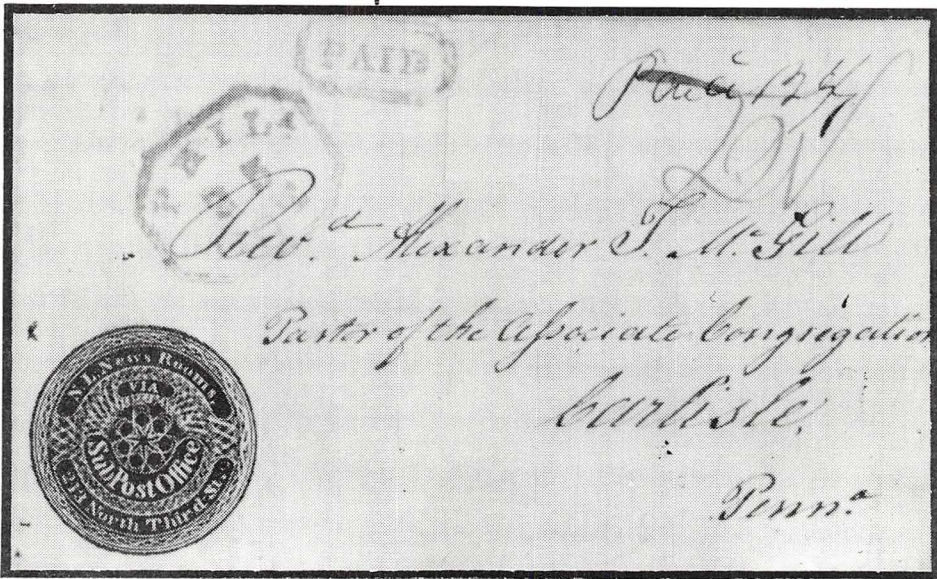 PAID
PHILA
Paid 12½
Revd. Alexander T. McGill
Pastor of the Associate Congregation
Carlisle,
Penna
N.L. News Rooms,
VIA
Sub Post Office
North Third St.